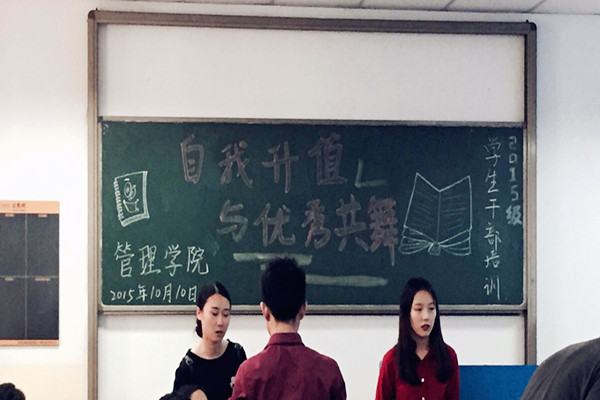 自我升值
与优秀共舞
管理学院
2015年10月10日
2015级
学生干部培训